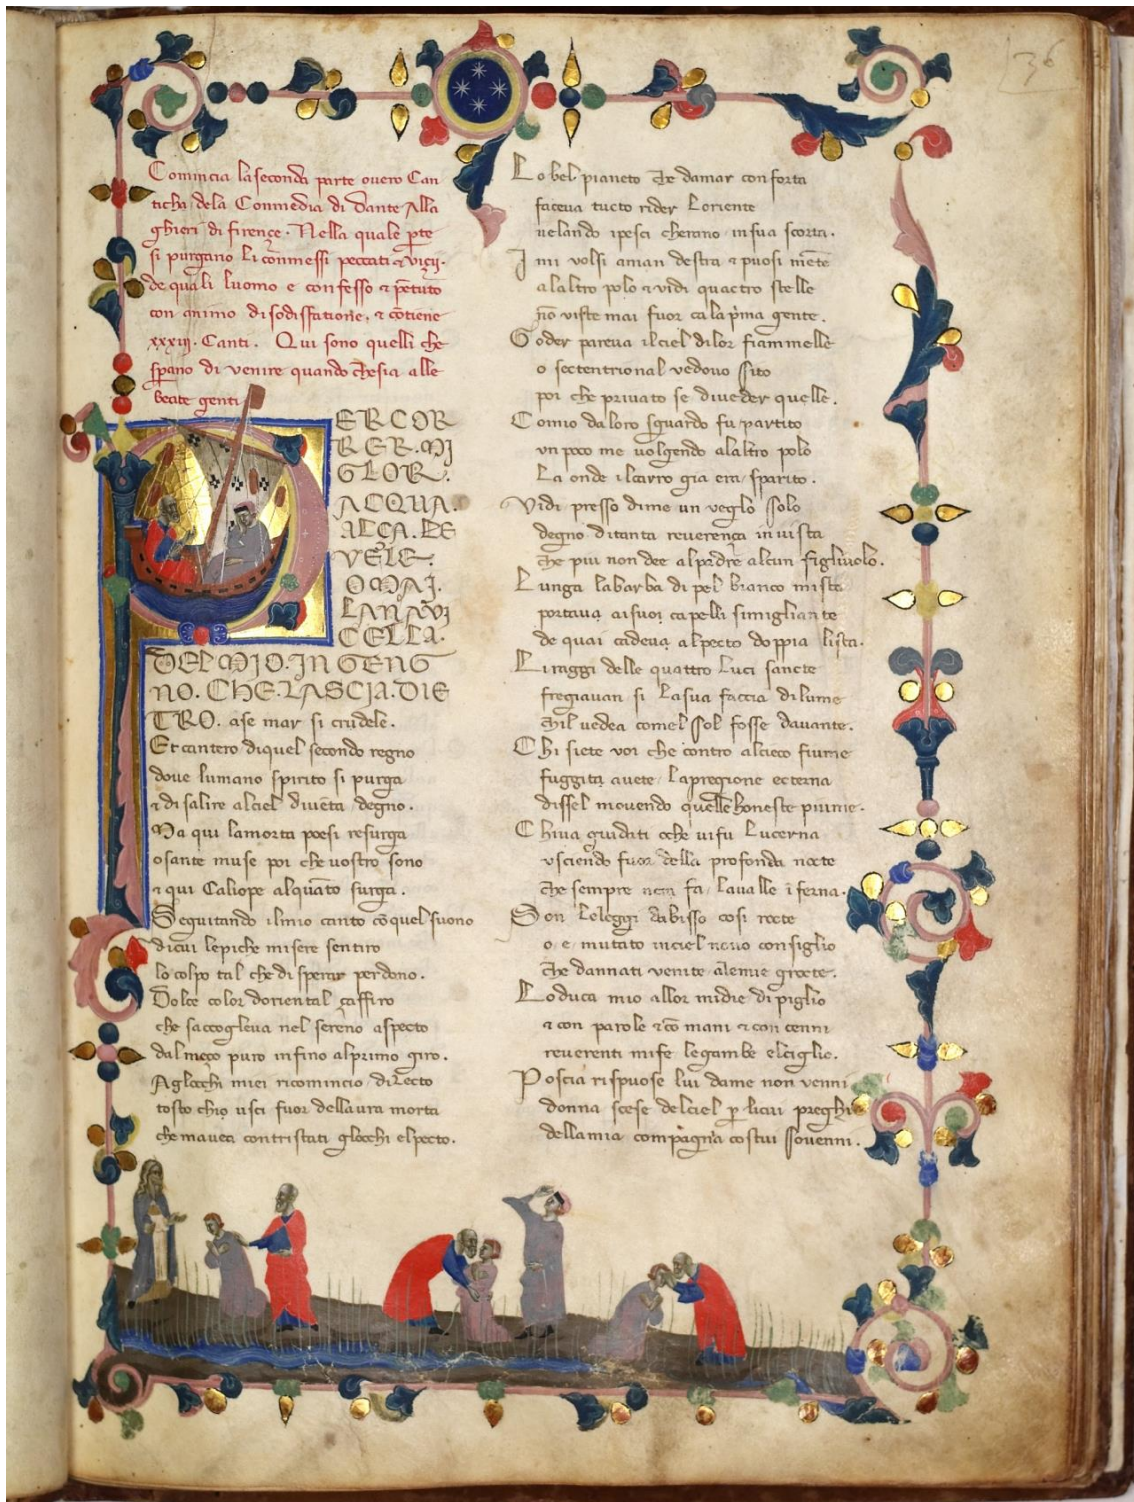 36
Comincia la seconda parte overo Can
ticha dela Commedia di dante Alla
ghieri di firençe. Nella quale pte
si purgano li commessi peccati & viçij.
de quali luomo e confesso & petuto
con animo di sodisfatione. & cotiene
xxxiij. Canti. Qui sono quelli che
sperano di venire quando chesia alle
beate genti
PER COR
RER. MI
GLOR.
ACQUA.
ALÇA. LE
VELE
OMAI.
LA NAVI
CELLA.
DEL MIO. INGENG
NO. CHE. LASCIA. DIE
TRO. ase mar si crudele.
Et cantero diquel secondo regno
dove lumano spirito si purga
& di salire alciel diveta degno.
Ma qui lamorta poesi resurga
o sante muse poi che vostro sono
& qui Caliope alquato surga.
Seguitando ilmio canto co quel suono
dicui lepiche misere sentiro
lo colpo tal che disperar perdono.
Dolce color doriental çaffiro
che saccogleva nel sereno aspecto
dal meço puro infino alprimo giro.
Aglocchi miei ricomincio dilecto
tosto chio usci fuor dellaura morta
che mavea contristati glocchi elpecto.
Lo bel pianeto che damar conforta
faceva tucto rider loriente
velando ipesci cherano in sua scorta.
I mi volsi aman destra & puosi mete
alaltro polo & vidi quactro stelle
no viste mai fuor cala pma gente.
Goder pareva ilciel dilor fiammelle
o sectentrional vedovo sito
poi che privato se diveder quelle.
Comio daloro sguardo fu partito
un poco me volgendo alaltro polo
La onde ilcarro gia era sparito.
Vidi presso dime un veglo solo
degno ditanta reverença in vista
che piu non dee alpadre alcun figliuolo.
Lunga labarba di pel bianco mista
portava aisuoi capelli simigliante
de quai cadeva alpecto doppia lista.
Li raggi delle quattro Luci sancte
fregiavan si la sua faccia di lume
chil vedea comel sol fosse davante.
Chi siete voi che contro alcieco fiume
fuggita avete lapregione ecterna
dissel movendo quelle honeste piume.
Chi va guidati oche vifu Lucerna
usciendo fuor della profonda nocte
che sempre nera fa lavalle iferna.
Son leleggi dabisso cosi rocte
o e mutato inciel novo consiglio
che dannati venite alemie grocte.
Lo duca mio allor midie di piglio
& con parole & co mani & con cenni
reverenti mife legambe elciglio.
Poscia rispuose lui dame non venni
donna scese delciel p licui preghi
della mia compagnia costui sovenni.